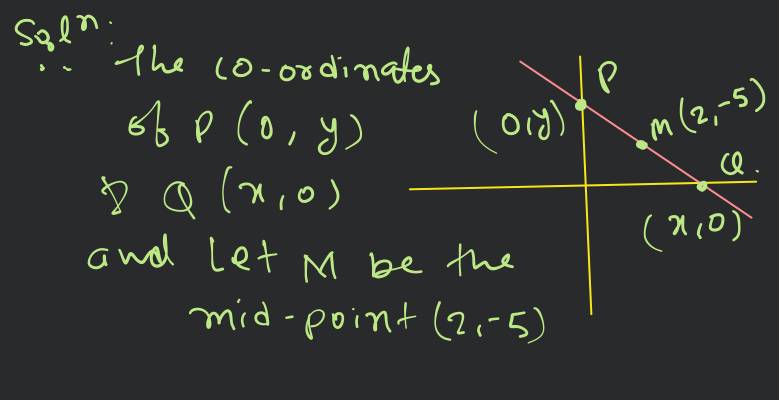 Solⁿ:
∴ The co-ordinates
of P (0, y)
& Q (x, 0)
and let M be the
mid-point (2, -5)
P
(0, y)
M (2, -5)
Q.
(x, 0)